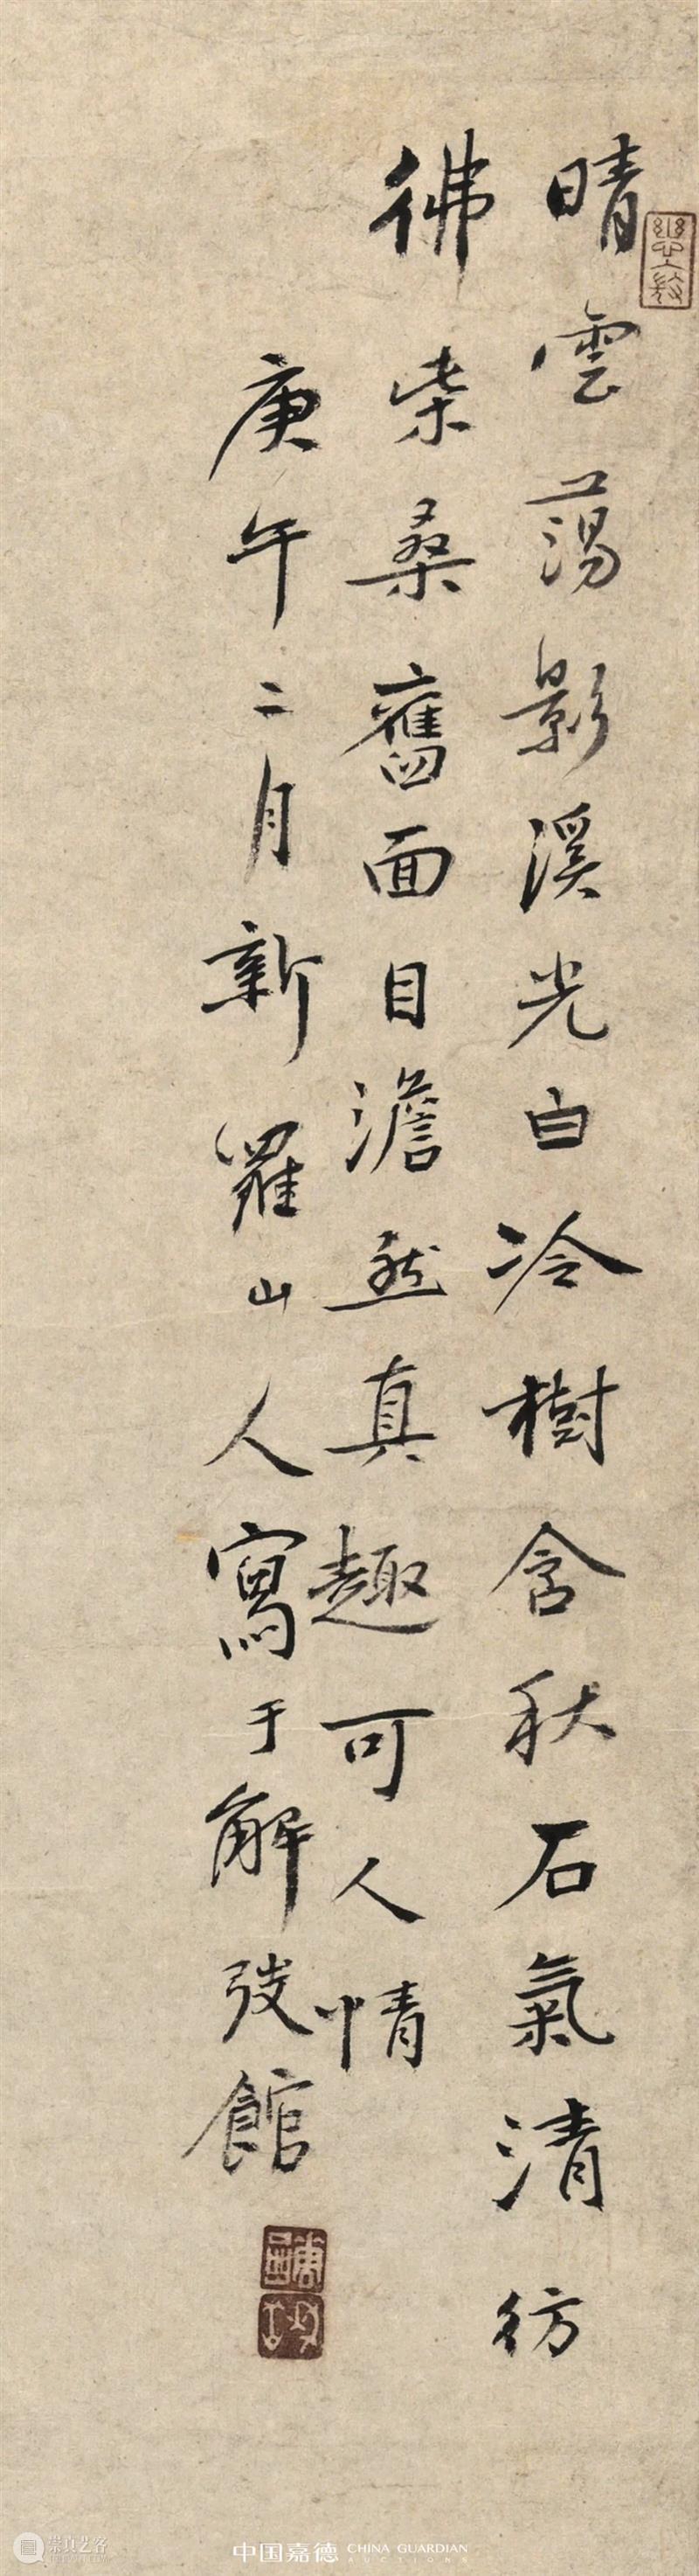 晴雲蕩影溪光白冷樹含秋石氣清彷
彿柴桑舊面目澹然真趣可人情
庚午二月新羅山人寫于解弢館
崇真艺客
中国嘉德 CHINA GUARDIAN
AUCTIONS